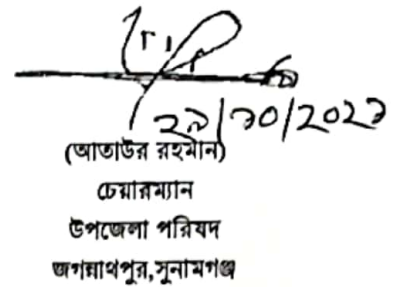 ২৯/১০/২০২১
(আতাউর রহমান)
চেয়ারম্যান
উপজেলা পরিষদ
জগন্নাথপুর,সুনামগঞ্জ